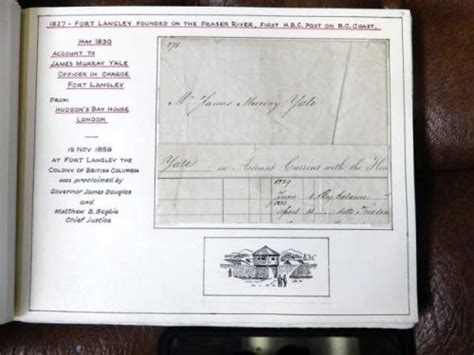 1827 - FORT LANGLEY FOUNDED ON THE FRASER RIVER, FIRST H.B.C. POST ON B.C. COAST.
MAY 1830
ACCOUNT TO
JAMES MURRAY YALE
OFFICER IN CHARGE
FORT LANGLEY
FROM
HUDSON'S BAY HOUSE
LONDON
19 NOV 1858
AT FORT LANGLEY THE
COLONY OF BRITISH COLUMBIA
was proclaimed by
Governor James Douglas
and
Matthew B. Begbie
Chief Justice
Mr James Murray Yale
Yale in Account Current with the
1829
June 1 By balance
1830
April